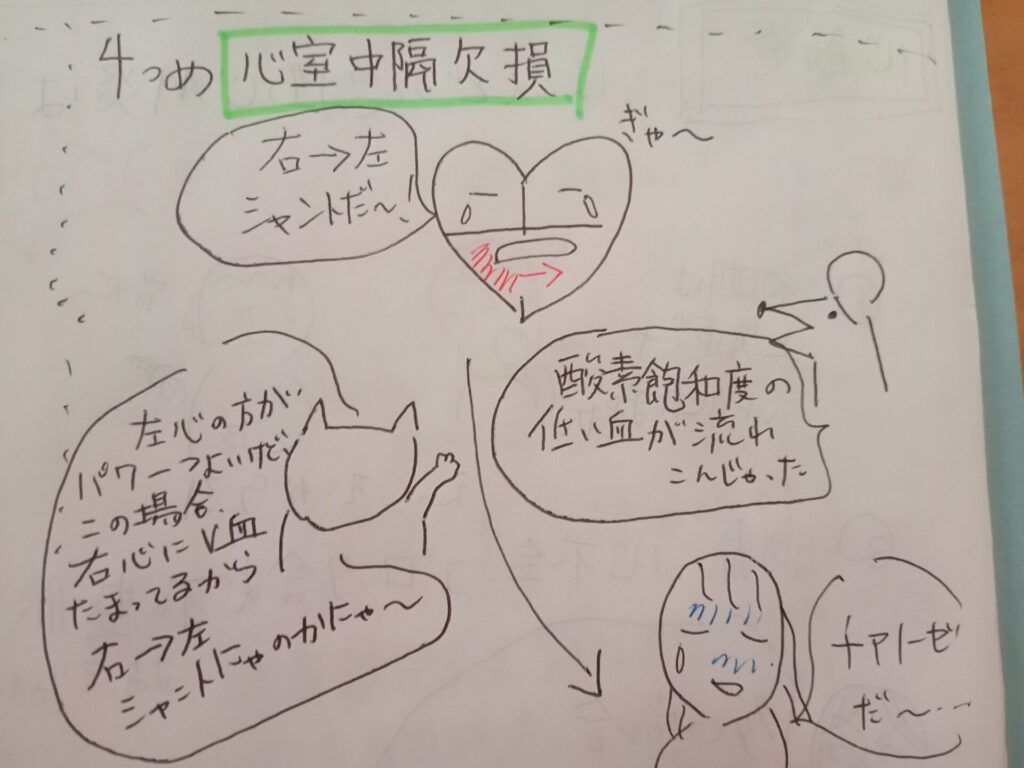 4つめ 心室中隔欠損
右→左
シャントだ〜!
ぎゃ〜
酸素飽和度の
低い血が流れ
こんじゃった
左心の方が
パワーつよいけど、
この場合、
右心にV血
たまってるから
右→左
シャントにゃのかにゃ〜
チアノーゼ
だ〜…